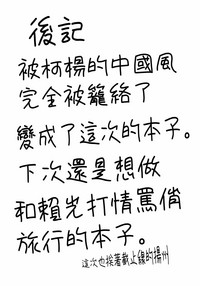 後記
被柯楊的中國風
完全被籠絡了
變成了這次的本子。
下次還是想做
和賴光打情罵俏
旅行的本子。
這次也挨著截止線的揚州